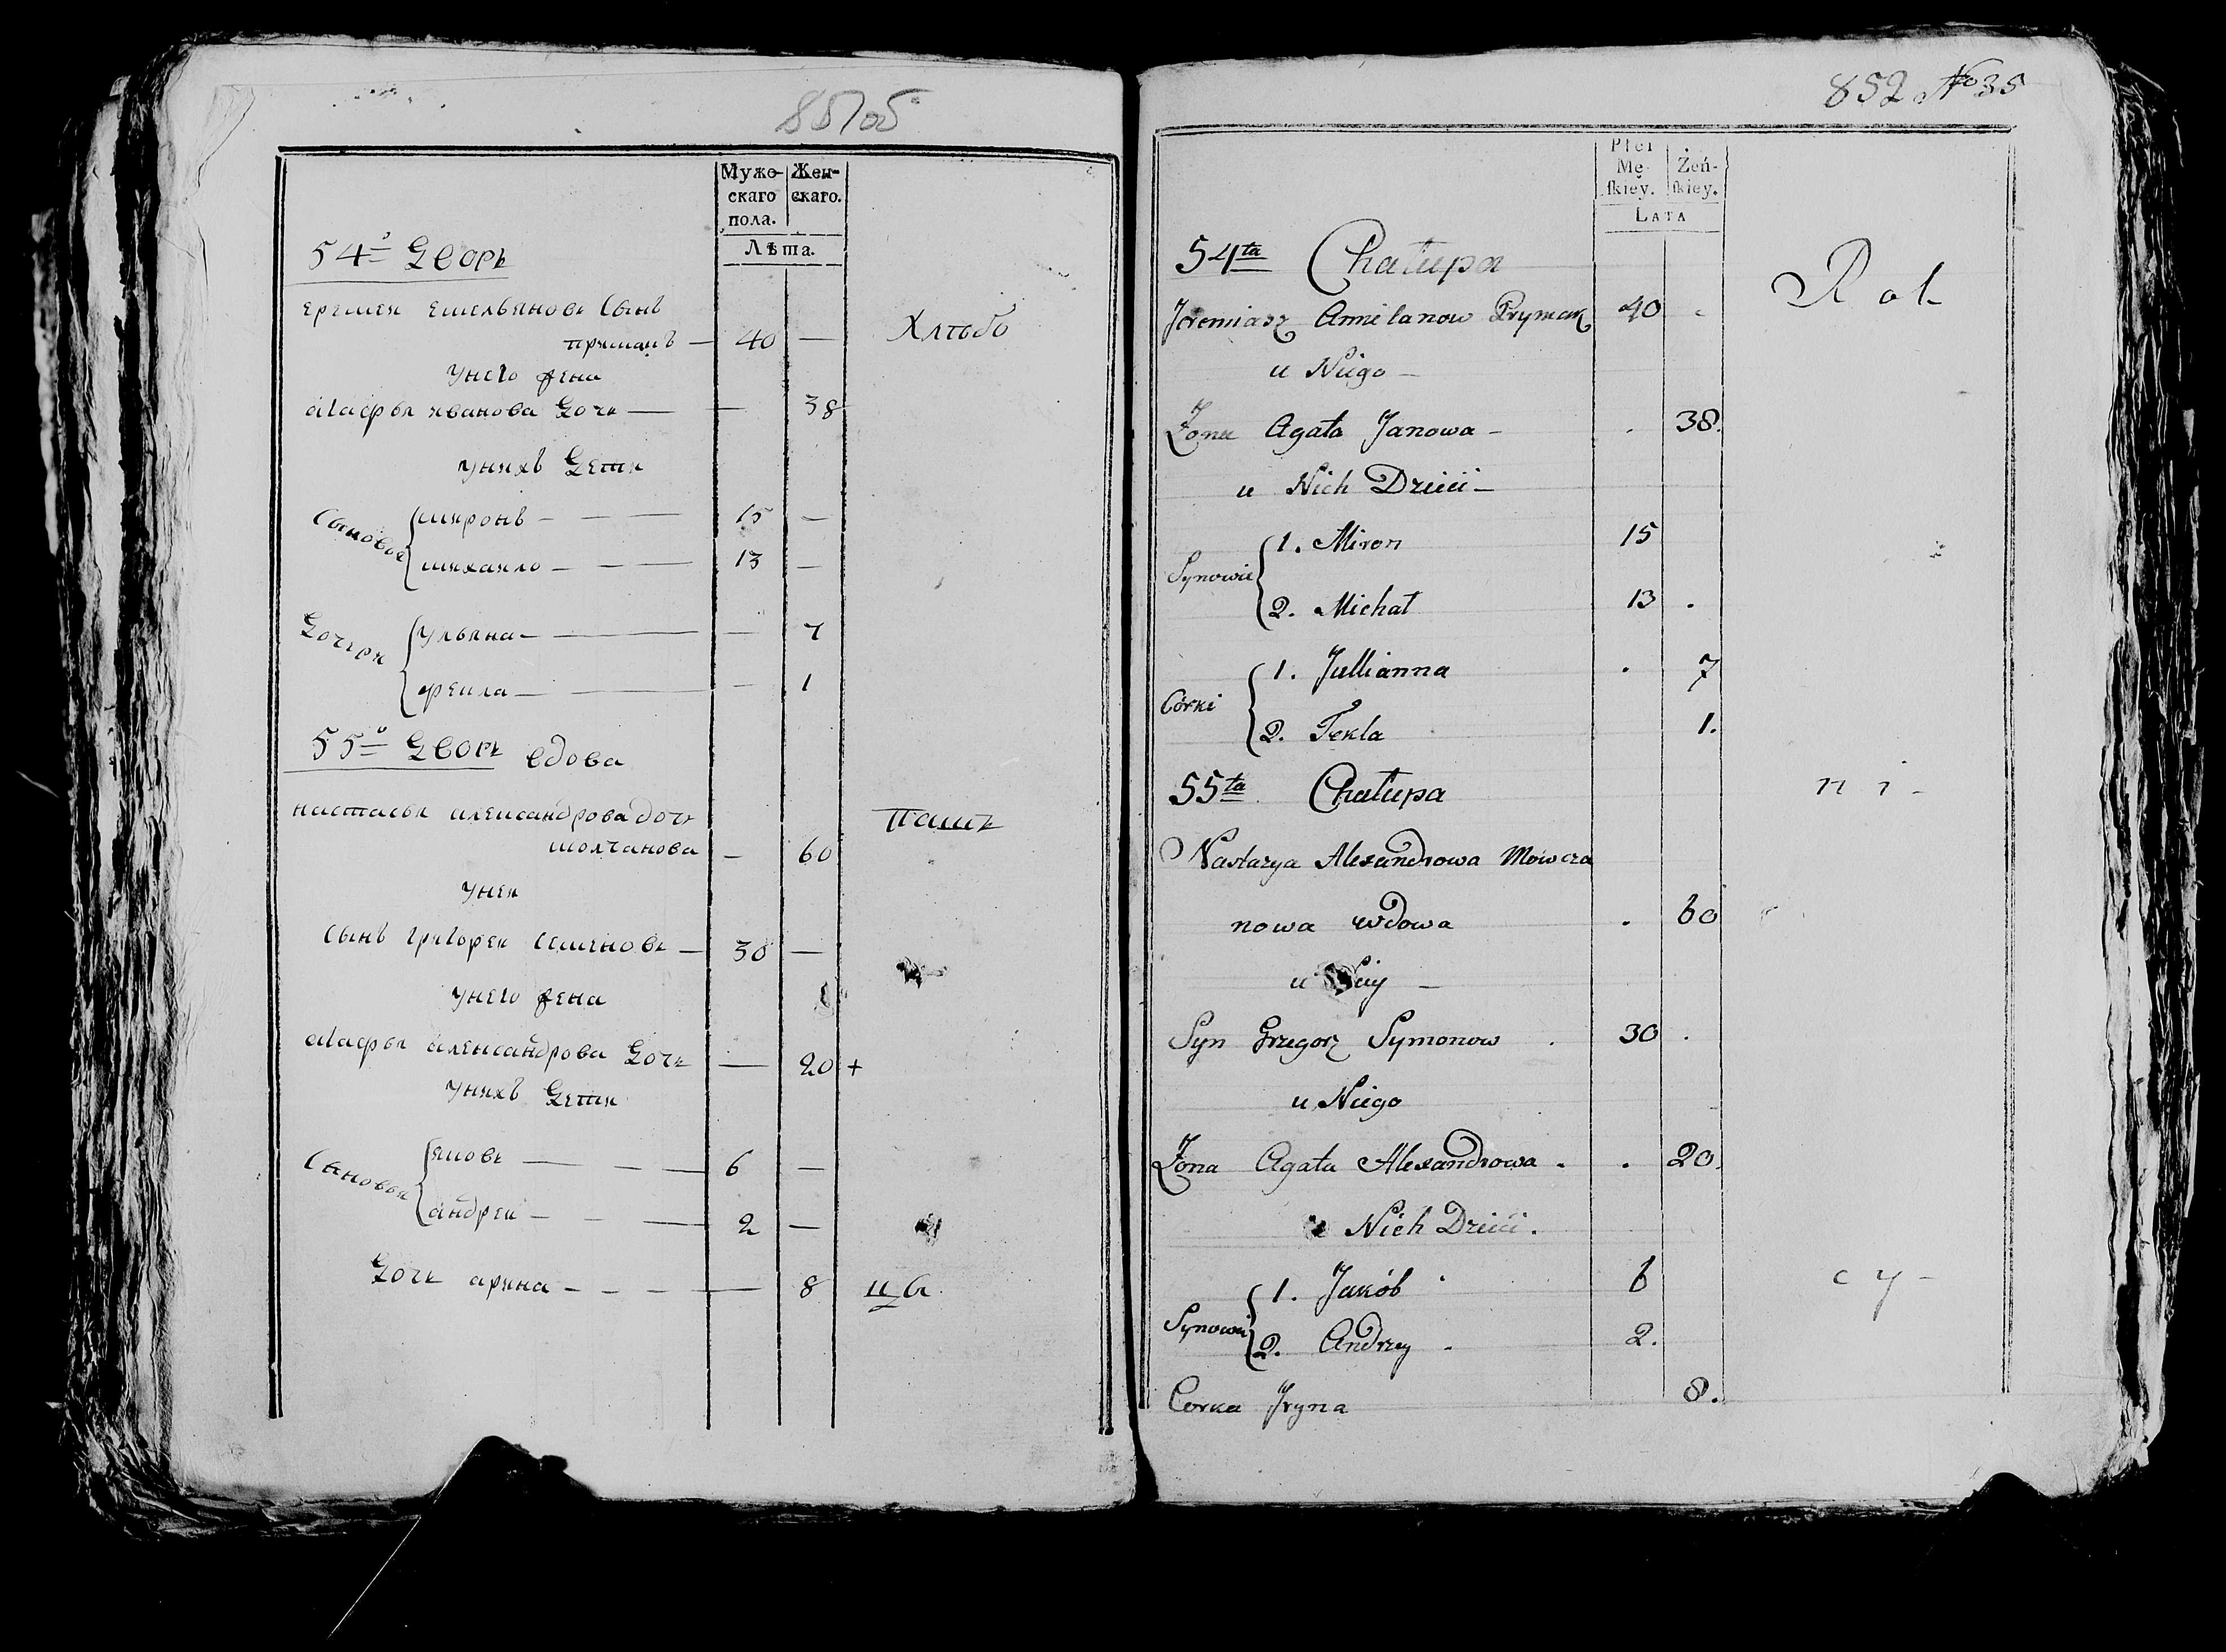 851об
Муже-
скаго
пола.
Жен-
скаго.
Лѣта.
54й Дворъ
еремея емельяновъ Сынъ
примакъ — 40 —
Хлѣбо
унего жена
агафья иванова Дочь — — 38
унихъ Дети
Сыновья
миронъ — 15 —
михаило — 13 —
Дочери
ульяна — — 7
фекла — — 1
55й Дворъ вдова
настасья александрова дочь
молчанова — 60
паш
унея
Сынъ григореи Семеновъ — 30 —
унего жена
агафья александрова Дочь — 20 +
унихъ Дети
Сыновья
яковъ — 6 —
андреи — 2 —
Дочь арина — — 8
852 No 35
Płci
Mę-
skiey.
Żeń-
skiey.
LATA
54ta Chałupa
Rol-
Jeremiasz Amielanow Prymak 40
u Niego —
Żona Agata Janowa — . 38.
u Nich Dzieci —
Synowie
1. Miron 15
2. Michał 13 .
Córki
1. Jullianna . 7
2. Tekla 1.
55ta Chałupa
n i -
Nastazya Alexandrowa Mowcza
nowa wdowa . 60
u Niey —
Syn Grzegorz Symonow . 30 .
u Niego
Żona Agata Alexandrowa . . 20.
u Nich Dzieci.
Synowie
1. Jakób 6
c y -
2. Andrzey . 2.
Corka Jryna 8.